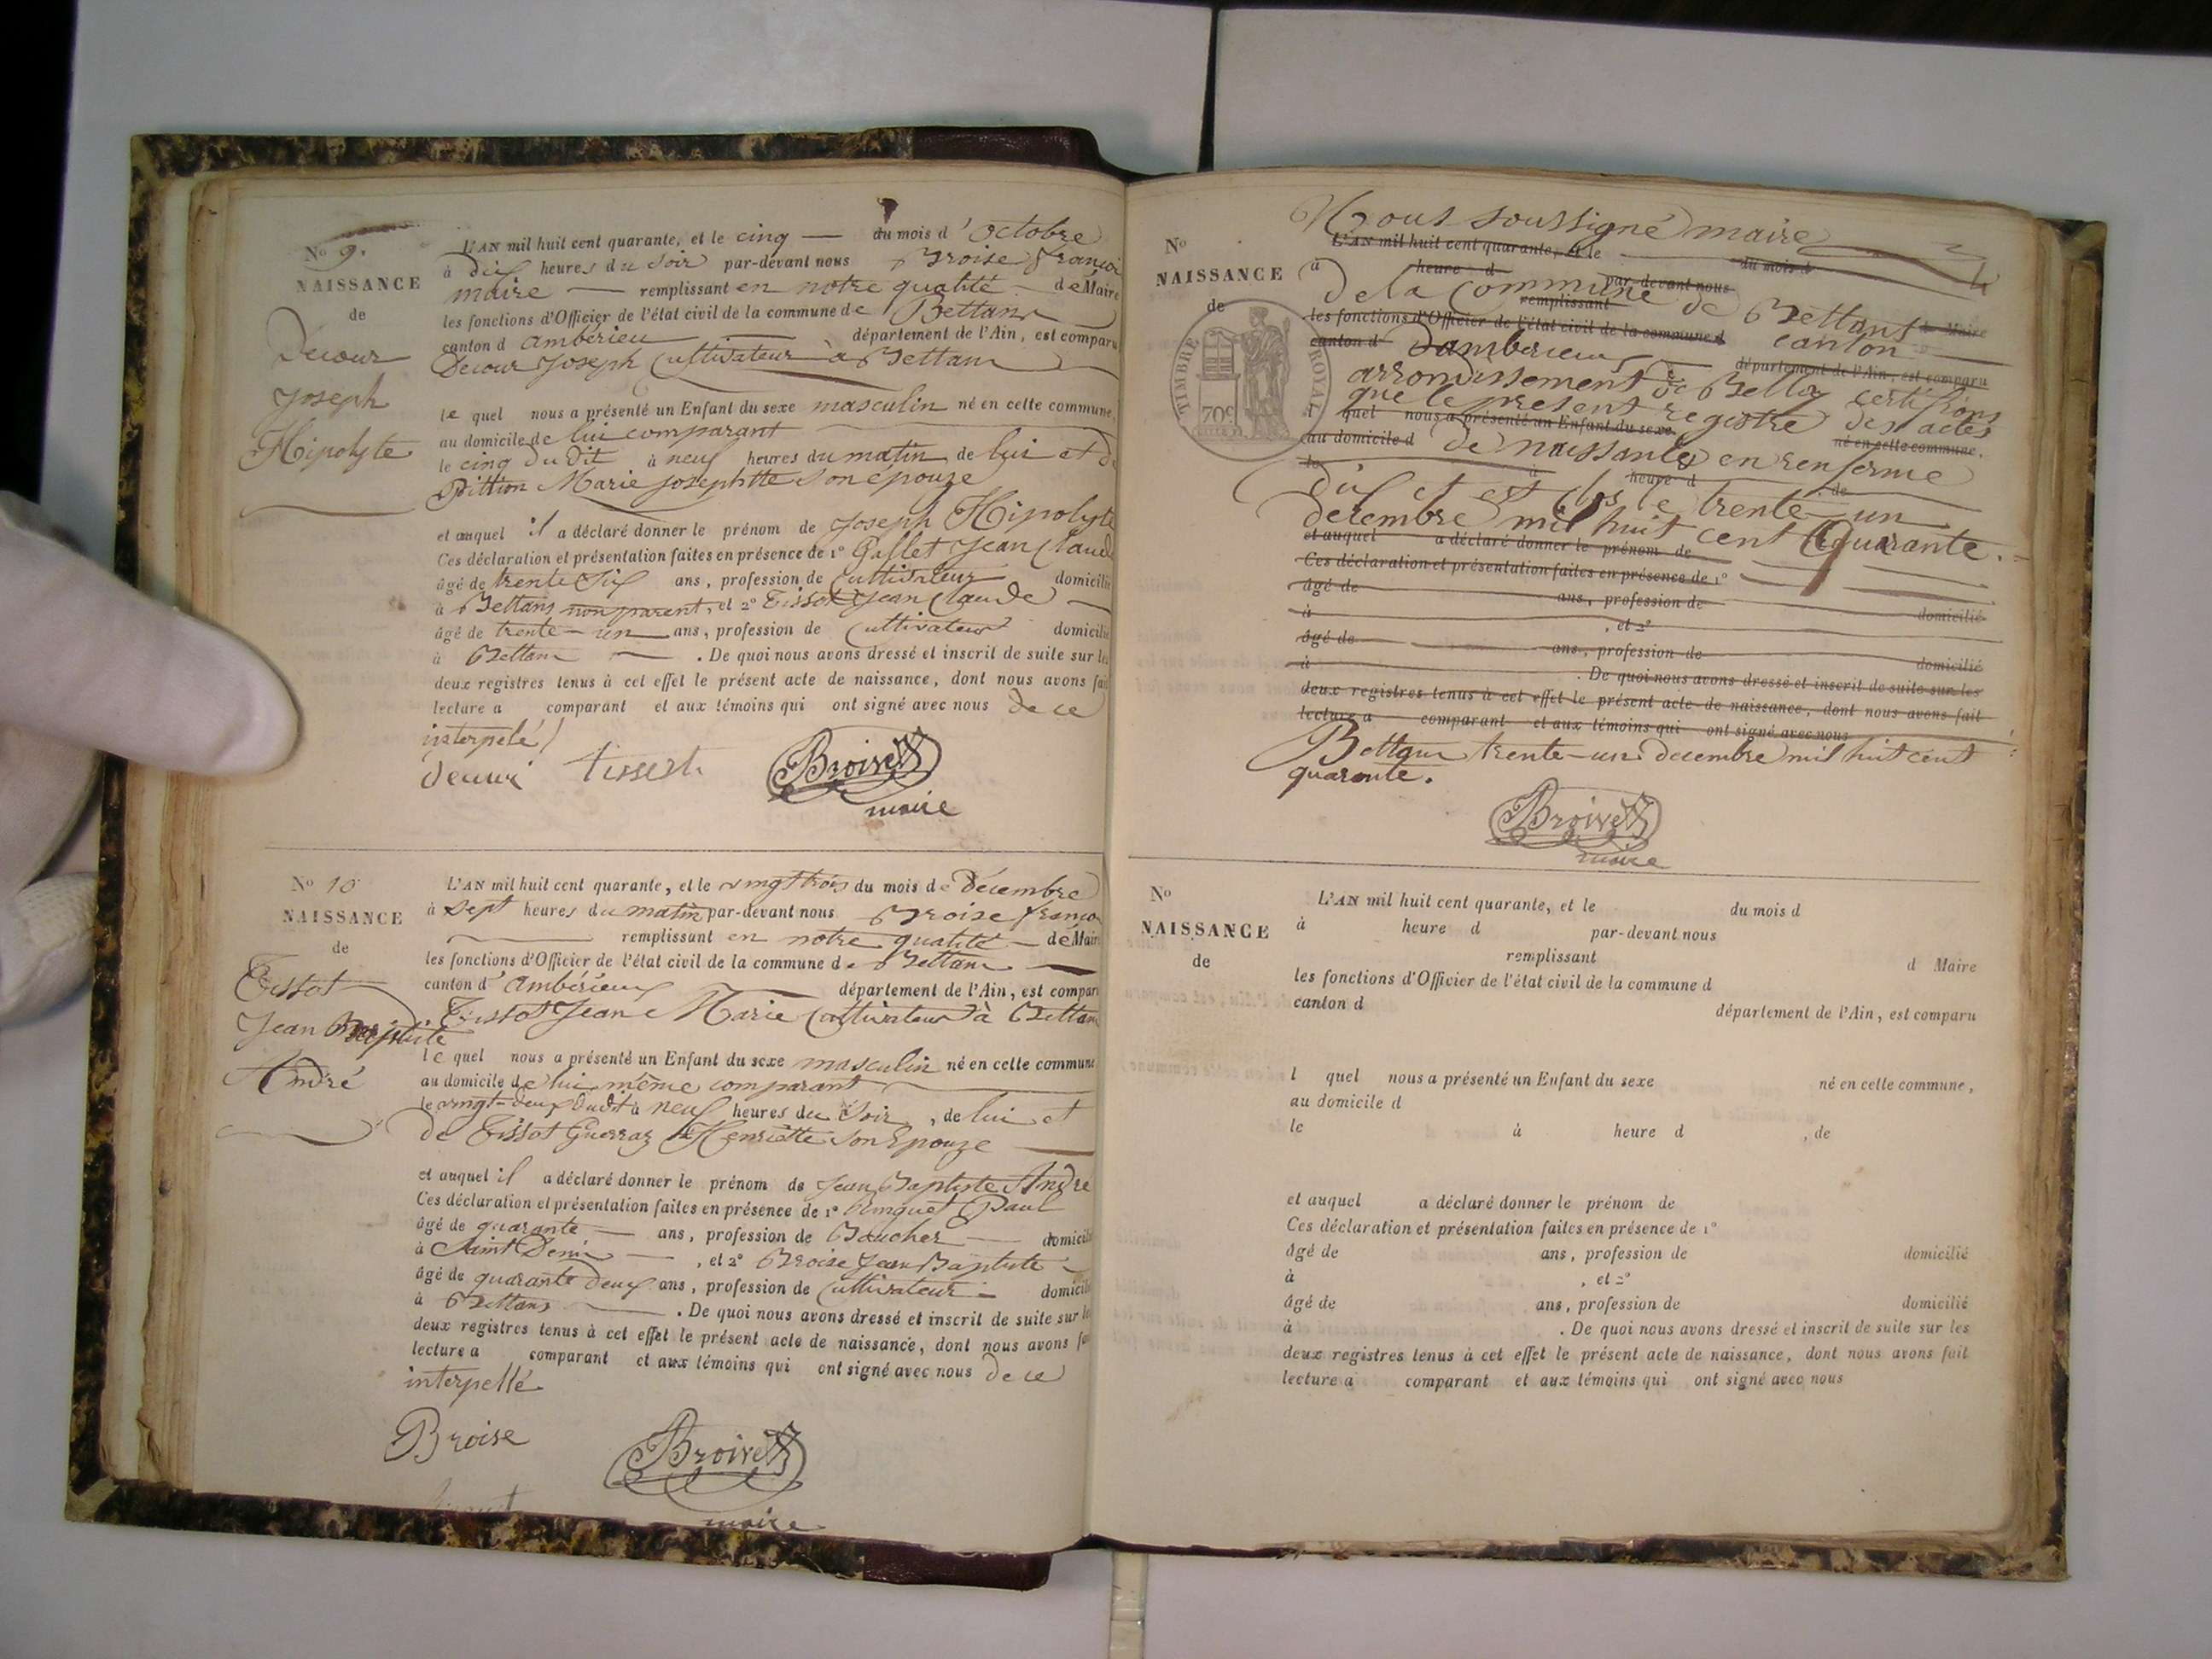 No 9.
NAISSANCE
de
Decour
Joseph
Hipolyte
L'AN mil huit cent quarante, et le cinq du mois d'Octobre
à dix heures du soir par-devant nous Broise François
maire remplissant en notre qualité de Maire
les fonctions d'Officier de l'état civil de la commune de Bettans
canton d'ambérieu département de l'Ain, est comparu
Decour Joseph Cultivateur à Bettans
le quel nous a présenté un Enfant du sexe masculin né en cette commune,
au domicile de lui comparant
le cinq du dit à neuf heures du matin de lui et de
Pittion Marie josephtte son épouze
et auquel il a déclaré donner le prénom de Joseph Hipolyte
Ces déclaration et présentation faites en présence de 1° Gallet Jean Claude
âgé de trente six ans, profession de Cultivateur domicilié
à Bettans non parent, et 2° Tissot Jean Claude
âgé de trente-un ans, profession de Cultivateur domicilié
à Bettans . De quoi nous avons dressé et inscrit de suite sur les
deux registres tenus à cet effet le présent acte de naissance, dont nous avons fait
lecture a comparant et aux témoins qui ont signé avec nous de ce
interpelé
Broise
maire
No 10
NAISSANCE
de
Tissot
Jean Baptiste
André
L'AN mil huit cent quarante, et le vingt trois du mois de Décembre
à sept heures du matin par-devant nous Broise françois
remplissant en notre qualité de Maire
les fonctions d'Officier de l'état civil de la commune de Bettans
canton d'ambérieux département de l'Ain, est comparu
Tissot Jean Marie Cultivateur à Bettans
le quel nous a présenté un Enfant du sexe masculin né en cette commune
au domicile de lui même comparant
le vingt-deux dudit à neuf heures du soir, de lui et
de Tissot Guerraz Henriette son Epouze
et auquel il a déclaré donner le prénom de Jean Baptiste André
Ces déclaration et présentation faites en présence de 1° Paul
âgé de quarante ans, profession de Boucher domicilié
à Saint Denis , et 2° Broise Jean Baptiste
âgé de quarante deux ans, profession de Cultivateur domicilié
à Bettans . De quoi nous avons dressé et inscrit de suite sur les
deux registres tenus à cet effet le présent acte de naissance, dont nous avons fait
lecture a comparant et aux témoins qui ont signé avec nous de ce
interpellé
Broise
Broise
maire
Nous soussigné maire
No
NAISSANCE
de
TIMBRE ROYAL
70c
L'AN mil huit cent quarante, et le du mois d
à heure d par-devant nous
de la Commune de Bettans
remplissant d Maire
les fonctions d'Officier de l'état civil de la commune d
canton d Dambérieux canton
département de l'Ain, est comparu
arrondissement de Belley certifions
que le present registre des actes
l quel nous a présenté un Enfant du sexe né en cette commune,
au domicile d de naissances en renferme
le à heure d , de
dix et est clos le trente-un
decembre mil huit cent quarante.
et auquel a déclaré donner le prénom de
Ces déclaration et présentation faites en présence de 1°
âgé de ans, profession de domicilié
à , et 2°
âgé de ans, profession de domicilié
à . De quoi nous avons dressé et inscrit de suite sur les
deux registres tenus à cet effet le présent acte de naissance, dont nous avons fait
lecture a comparant et aux témoins qui ont signé avec nous
Bettans trente-un decembre mil huit cent
quarante.
Broise
maire
No
NAISSANCE
de
L'AN mil huit cent quarante, et le du mois d
à heure d par-devant nous
remplissant d Maire
les fonctions d'Officier de l'état civil de la commune d
canton d département de l'Ain, est comparu
l quel nous a présenté un Enfant du sexe né en cette commune,
au domicile d
le à heure d , de
et auquel a déclaré donner le prénom de
Ces déclaration et présentation faites en présence de 1°
âgé de ans, profession de domicilié
à , et 2°
âgé de ans, profession de domicilié
à . De quoi nous avons dressé et inscrit de suite sur les
deux registres tenus à cet effet le présent acte de naissance, dont nous avons fait
lecture a comparant et aux témoins qui ont signé avec nous